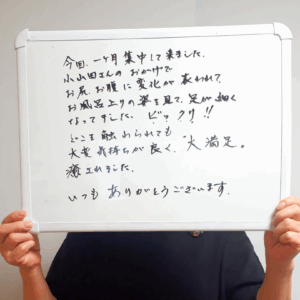 今回、一ヶ月集中して来ました。
小山田さんのおかげで
お尻、お腹に変化が表われて、
お風呂上りの姿を見て、足が細く
なってました。ビックリ!!
どこを触わられても
大変気持ちが良く、"大満足。
癒されました。
いつもありがとうございます。